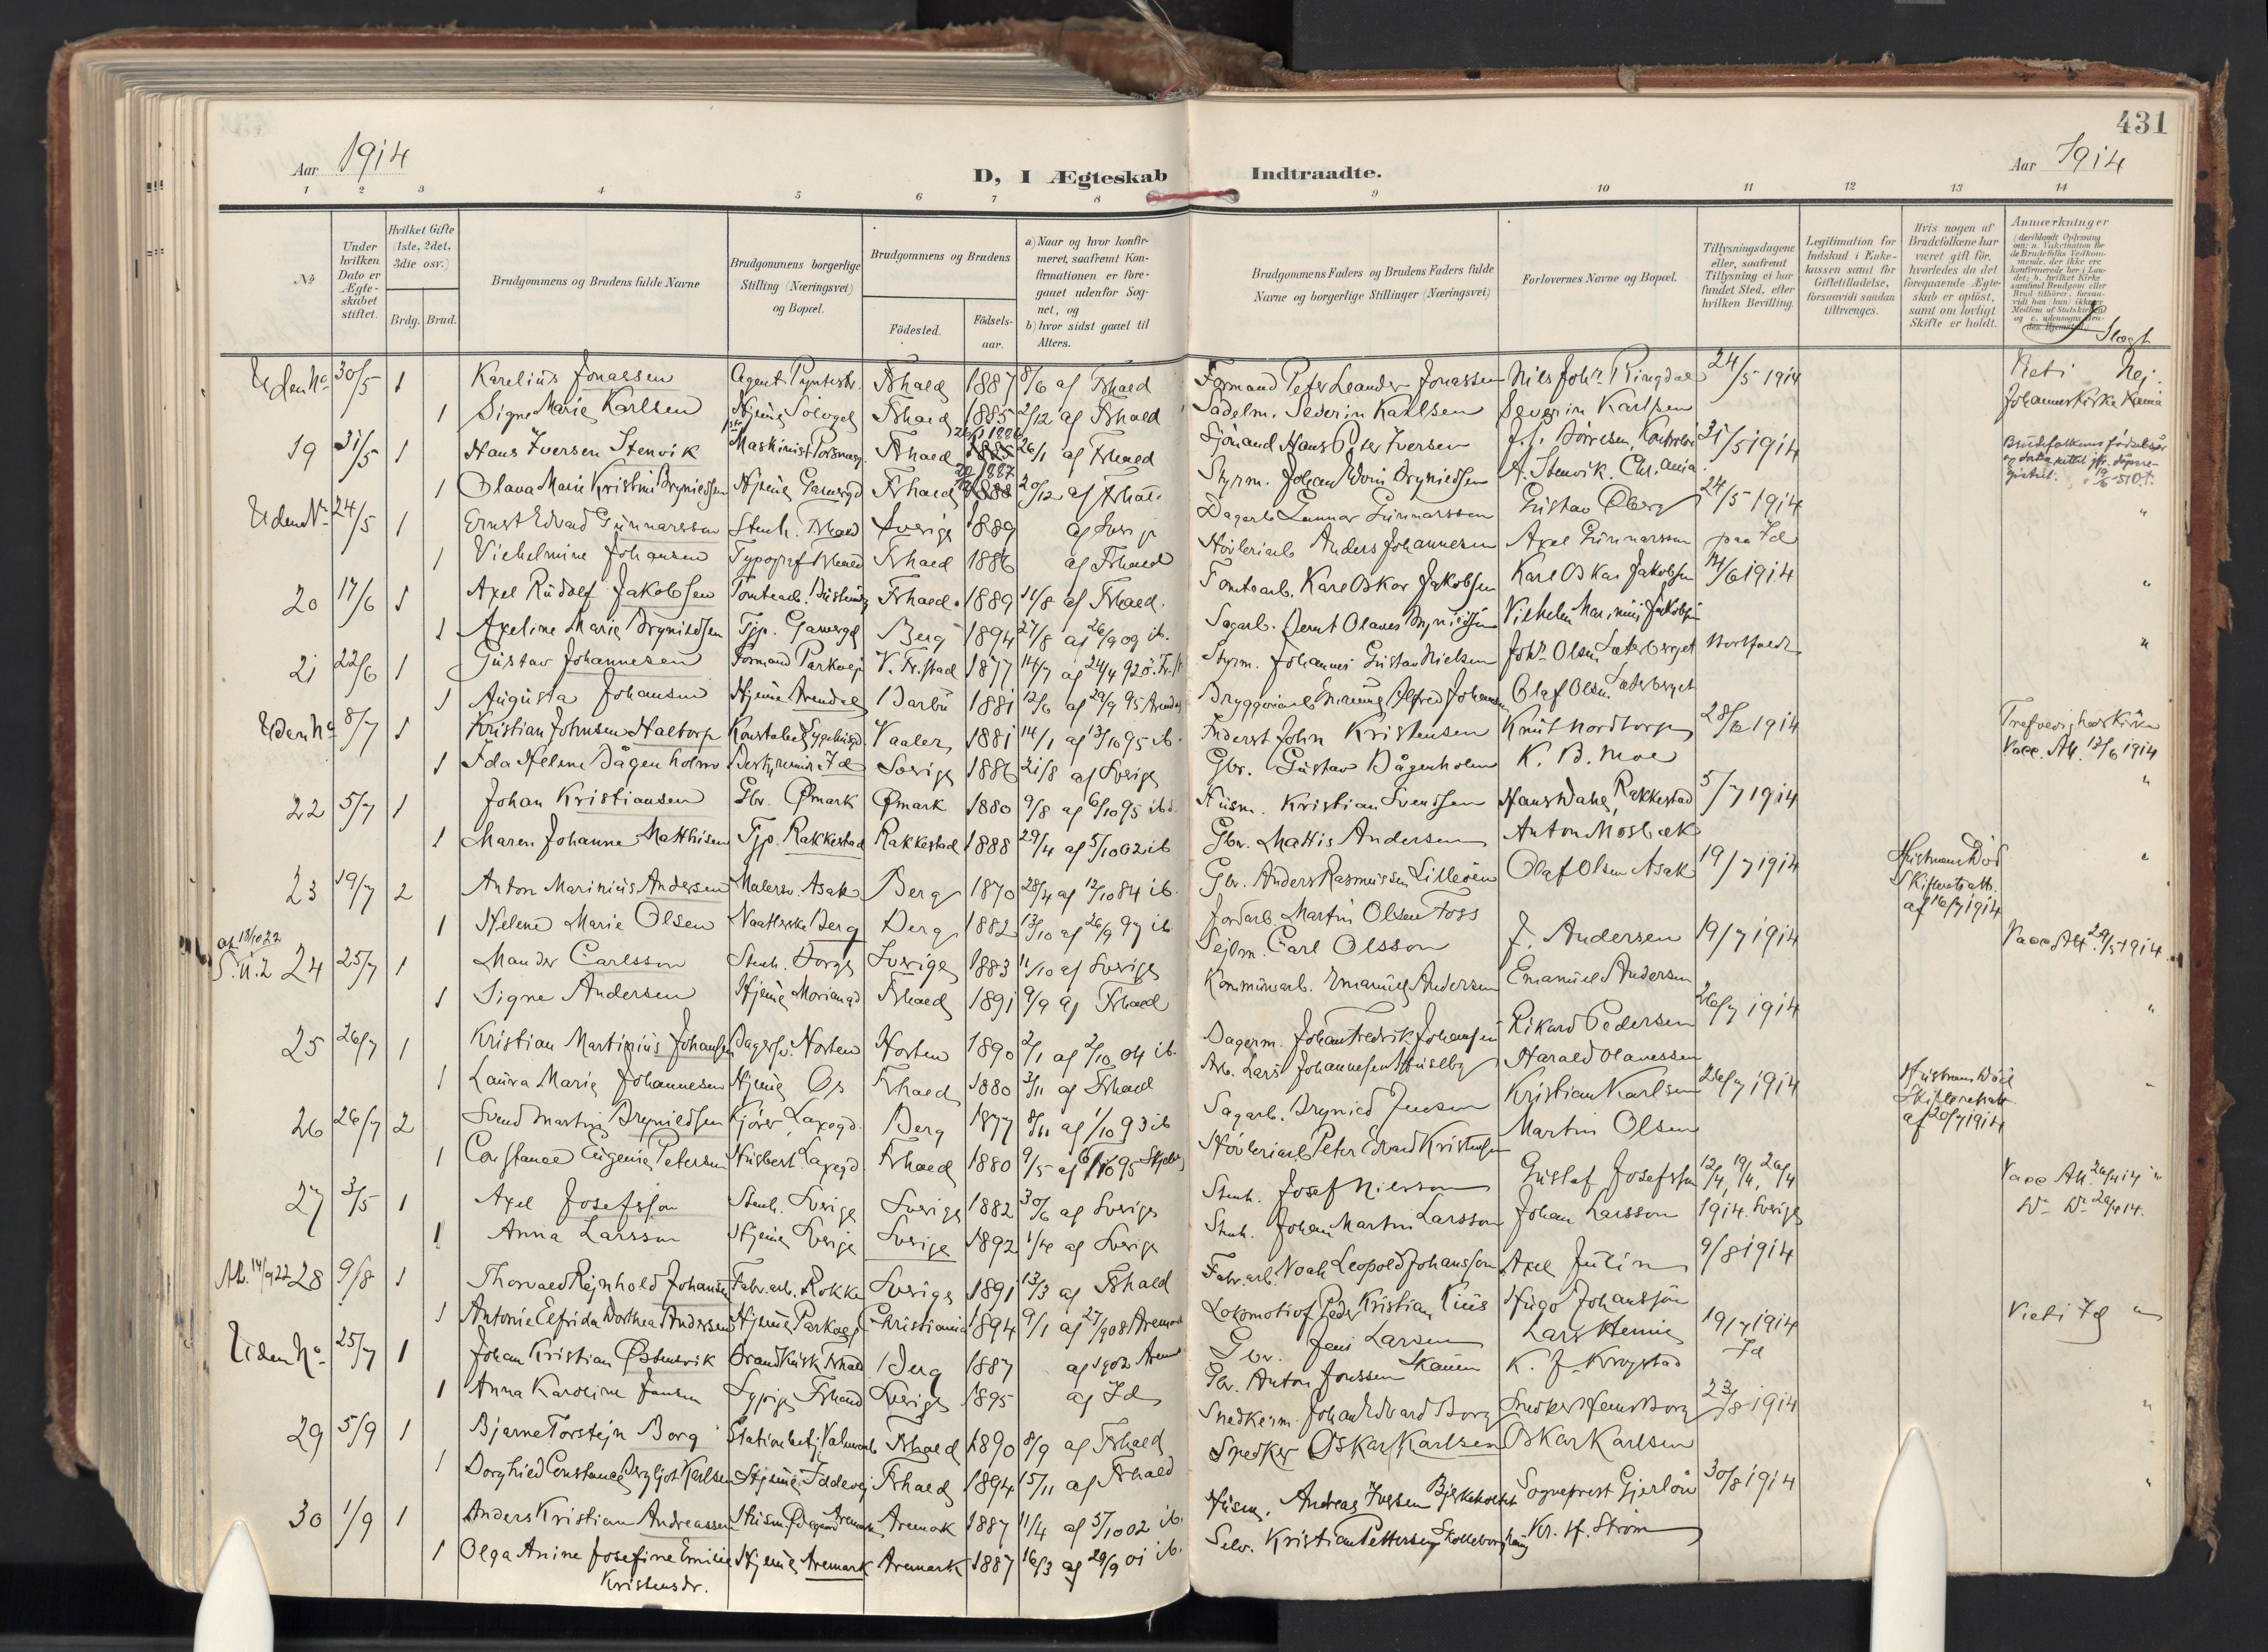 431
Aar 1914
D, I Ægteskab Indtraadte.
Aar 1914
1 2 3 4 5 6 7 8 9 10 11 12 13 14
No
Under hvilken Dato er Ægteskabet stiftet.
Hvilket Gifte (1ste, 2det, 3die osv.)
Brdg. Brud.
Brudgommens og Brudens fulde Navne
Brudgommens borgerlige Stilling (Næringsvei) og Bopæl.
Brudgommens og Brudens
Födested.
Födsels-aar.
a) Naar og hvor konfirmeret, saafremt Konfirmationen er foregaaet udenfor Sognet, og
b) hvor sidst gaaet til Alters.
Brudgommens Faders og Brudens Faders fulde Navne og borgerlige Stillinger (Næringsvei)
Forlovernes Navne og Bopæl.
Tillysningsdagene eller, saafremt Tillysning ei har fundet Sted, efter hvilken Bevilling.
Legitimation for Indskud i Enkekassen samt for Giftetilladelse, forsaavidt saadan tiltrænges.
Hvis nogen af Brudefolkene har været gift för, hvorledes da det foregaaende Ægteskab er oplöst, samt om lovligt Skifte er holdt.
Anmærkninger
Slægt
Uden No 30/5 1 Karelius Jonassen Agent Fhald 1887 8/6 af Fhald Formand Peter Leander Jonassen Nils Johs. Ringdal 24/5 1914 Nei
1 Signe Marie Karlsen Hjemme Fhald 1885 2/12 af Fhald Sadelm. Severin Karlsen Severin Karlsen
19 31/5 1 Hans Iversen Stenvik Maskinist Fhald 1885 26/1 af Fhald Sjömand Hans Peter Iversen 31/5 1914
1 Olava Marie Kristine Bryniedssen Hjemme Fhald 1888 20/12 af Fhald Styrm. Johan Edvin Bryniedssen A. Stenvik. Chr.ania
Uden No 24/5 1 Ernst Edvard Gunnarsson Stenh. Fhald Sverige 1889 af Sverige Dagarb. Gunnar Gunnarsson Gustav Öberg 24/5 1914
1 Vilhelmine Johansen Typograf Fhald Fhald 1886 af Fhald Hövleriarb. Anders Johannesen Axel Gunnarsson paa Id
20 17/6 1 Axel Rudolf Jakobsen Tomtearb. Fhald 1889 11/8 af Fhald. Tomtearb. Karl Oskar Jakobsen Karl Oskar Jakobsen 14/6 1914
1 Axeline Marie Bryniedssen Tjp. Berg 1894 27/8 af 26/9 09 ib. Sagarb. Bernt Olaves Bryniedssen
21 22/6 1 Gustav Johannesen Formand Parkvej V. Fr.stad 1877 14/7 af 24/4 92 Styrm. Johannes Gustav Nielsen Johs. Olsen Sæterberget
1 Augusta Johansen Hjemme Arendal Barbu 1881 12/6 af 29/9 95 Arendal Alfred Johansen Olaf Olsen Sæterberget
Uden No 8/7 1 Kristian Johnsen Haltorp Konstabel Vaaler 1881 14/1 af 13/10 95 ib. Inderst John Kristensen Knut Nordtorp 28/6 1914
1 Ida Helene Bågenholm Id Sverige 1886 21/8 af Sverige Gbr. Gustav Bågenholm K. B. Moe Vacc. Att. 12/6 1914
22 5/7 1 Johan Kristiansen Gbr. Ømark Ømark 1880 9/8 af 6/10 95 ibd. Husm. Kristian Svendsen Hans Dahl, Rakkestad 5/7 1914
1 Maren Johanne Matthisen Tjp. Rakkestad Rakkestad 1888 29/4 af 5/10 02 ib Gbr. Mattis Andersen Anton Mosbæk
23 19/7 2 Anton Marinius Andersen Malersv. Asak Berg 1870 28/4 af 12/10 84 ib. Gbr. Anders Rasmussen Lilleöen Olaf Olsen Asak 19/7 1914 Hustruens Död Skifteretsatt. af 16/7 1914
1 Helene Marie Olsen Berg Berg 1882 13/10 af 26/9 97 ib Jordarb. Martin Olsen Foss
24 25/7 1 Mander Carlsson Stenh. Torge Sverige 1883 11/10 af Sverige Sejlm. Carl Olsson J. Andersen 19/7 1914 Vacc. Att. 29/5 1914
1 Signe Andersen Hjemme Fhald 1891 9/9 af Fhald Kommunearb. Emanuel Andersen Emanuel Andersen
25 26/7 1 Kristian Martinius Johansen Horten Horten 1890 2/1 af 2/10 04 ib. Dagerm. Johan Fredrik Johansen Rikard Pedersen 26/7 1914
1 Laura Marie Johannesen Hjemme Os Fhald 1880 3/11 af Fhald Arb. Lars Johannesen Harald Olavessen
26 26/7 2 Svend Martin Bryniedssen Kjörer Berg 1877 8/11 af 1/10 93 ib Sagarb. Brynied Jensen Kristian Karlsen 26/7 1914 Hustruens Död Skifteretsatt. af 20/7 1914
1 Constance Eugenie Petersen Husbest. Fhald 1880 9/5 af 6/10 95 Skjeberg Hövleriarb. Peter Edvard Kristensen Martin Olsen
27 3/5 1 Axel Josefsson Stenh. Sverige Sverige 1882 30/6 af Sverige Stenh. Josef Nilsson Gustaf Josefsson 12/4, 19/4, 26/4
1 Anna Larsson Hjemme Sverige Sverige 1892 af Sverige Stenh. Johan Martin Larsson Johan Larsson 1914. Sverige
28 9/8 1 Thorvald Rejnhold Johansen Fabr.arb. Rokke Sverige 1891 13/3 af Fhald Fabr.arb. Noak Leopold Johansson Axel Julin 9/8 1914
1 Antonie Elfrida Dorthea Andersen Hjemme Parkvej Christiania 1894 9/1 af 27/9 08 Aremark Lokomotivf. Peder Kristian Hugo Johansson
Uden No 25/7 1 Johan Kristian Østensvik Fhald Berg 1887 af 1902 Arem. Gbr. Jens Larsen Lars Henie 19/7 1914 Id Vieti Id
1 Anna Karoline Jansen Fhald Sverige 1895 af Id Gbr. Anton Jonssen Skauen K. J. Krogstad
29 5/9 1 Bjarne Torstejn Borg Fhald 1890 8/9 af Fhald Snedkerm. Johan Edvard Borg 23/8 1914
1 Borghild Constance Bergljot Karlsen Hjemme Iddevej Fhald 1894 15/11 af Fhald Snedker Oskar Karlsen Oskar Karlsen
30 1/9 1 Anders Kristian Andreassen Husm. Aremark Aremark 1887 11/4 af 5/10 02 ib. Husm. Andreas Iversen Bjerkeholtet Sogneprest Gjerlöw 30/8 1914
1 Olga Anine Josefine Emilie Hjemme Aremark Aremark 1887 16/3 af 29/9 01 ib. Selv. Kristian Pettersen Kr. H. Ström
Kristensdr.